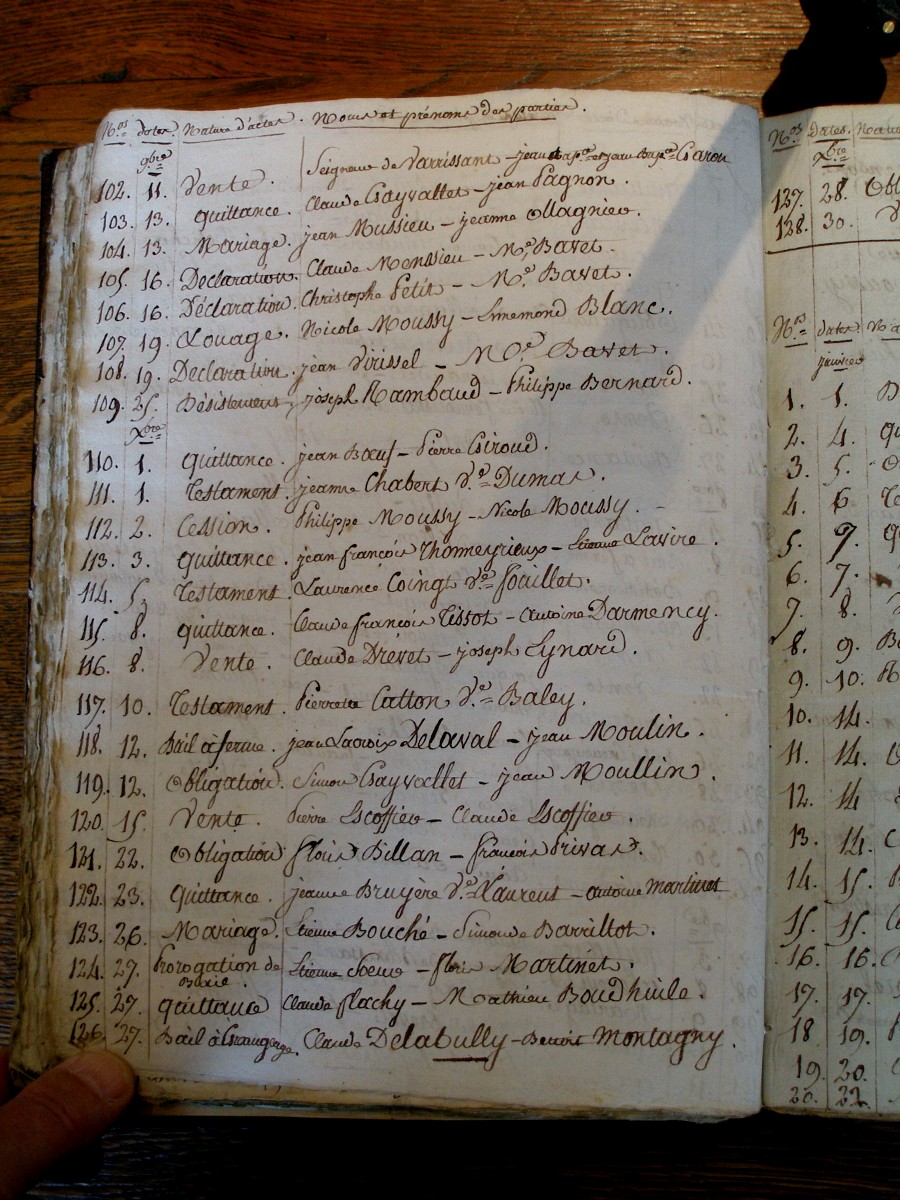 N.os dates. Nature d'actes. Noms et prénoms des parties.
9bre
102. 11. Vente. Seigneur de Varrissant - jean Bap.te et jean Bap.te Caron
103. 13. quittance. Claude Gayvallet - jean Pagnon.
104. 13. Mariage. jean Mussieu - jeanne Ollagnier.
105. 16. Declaration. Claude Monssieu - M.e Bavet.
106. 16. Déclaration. Christophe Petit - M.e Bavet.
107. 19. Louage. Nicole Moussy - Ennemond Blanc.
108. 19. Declaration. jean Virissel - M.e Bavet.
109. 25. Désistement, joseph Rambaud - Philippe Bernard.
Xbre
110. 1. quittance. jean Bœuf - Pierre Giroud.
111. 1. Testament. jeanne Chabert V.e Dumas.
112. 2. Cession. Philippe Moussy - Nicole Moussy.
113. 3. quittance. jean françois Thomeyrieux - Etienne Lavire.
114. 5. Testament. Laurence Coingt V.e fouillet.
115. 8. quittance. Claude françois Tissot - Antoine Darmency.
116. 8. Vente. Claude Drevet - joseph Eynard.
117. 10. Testament. Pierrette Catton V.e Baley.
118. 12. Bail à ferme. jean Lacroix Delaval - jean Moulin.
119. 12. Obligation. Simon Gayvallet - jean Moullin.
120. 15. Vente. Pierre Escoffier - Claude Escoffier.
121. 22. Obligation floris Billan - françois Privas.
122. 23. quittance. jeanne Bruyère V.e Laurent - antoine Martinet
123. 26. Mariage. Etienne Bouché - Simonde Barrillot.
124. 27. Prorogation de Etienne - floris Martinet.
125. 27. quittance Claude flachy - Mathieu Boudhuile.
126. 27. Bail à Grangeage. Claude Delabully - Benoit Montagny.
N.os Dates.
Xbre
127. 28.
128. 30.
N.os dates
janvier
1. 1.
2. 4.
3. 5.
4. 6
5. 7.
6. 7.
7. 8.
8. 9.
9. 10.
10. 14.
11. 14.
12. 14
13. 14.
14. 15.
15. 15.
16. 16.
17. 17.
18 19.
19. 20.
20. 22.